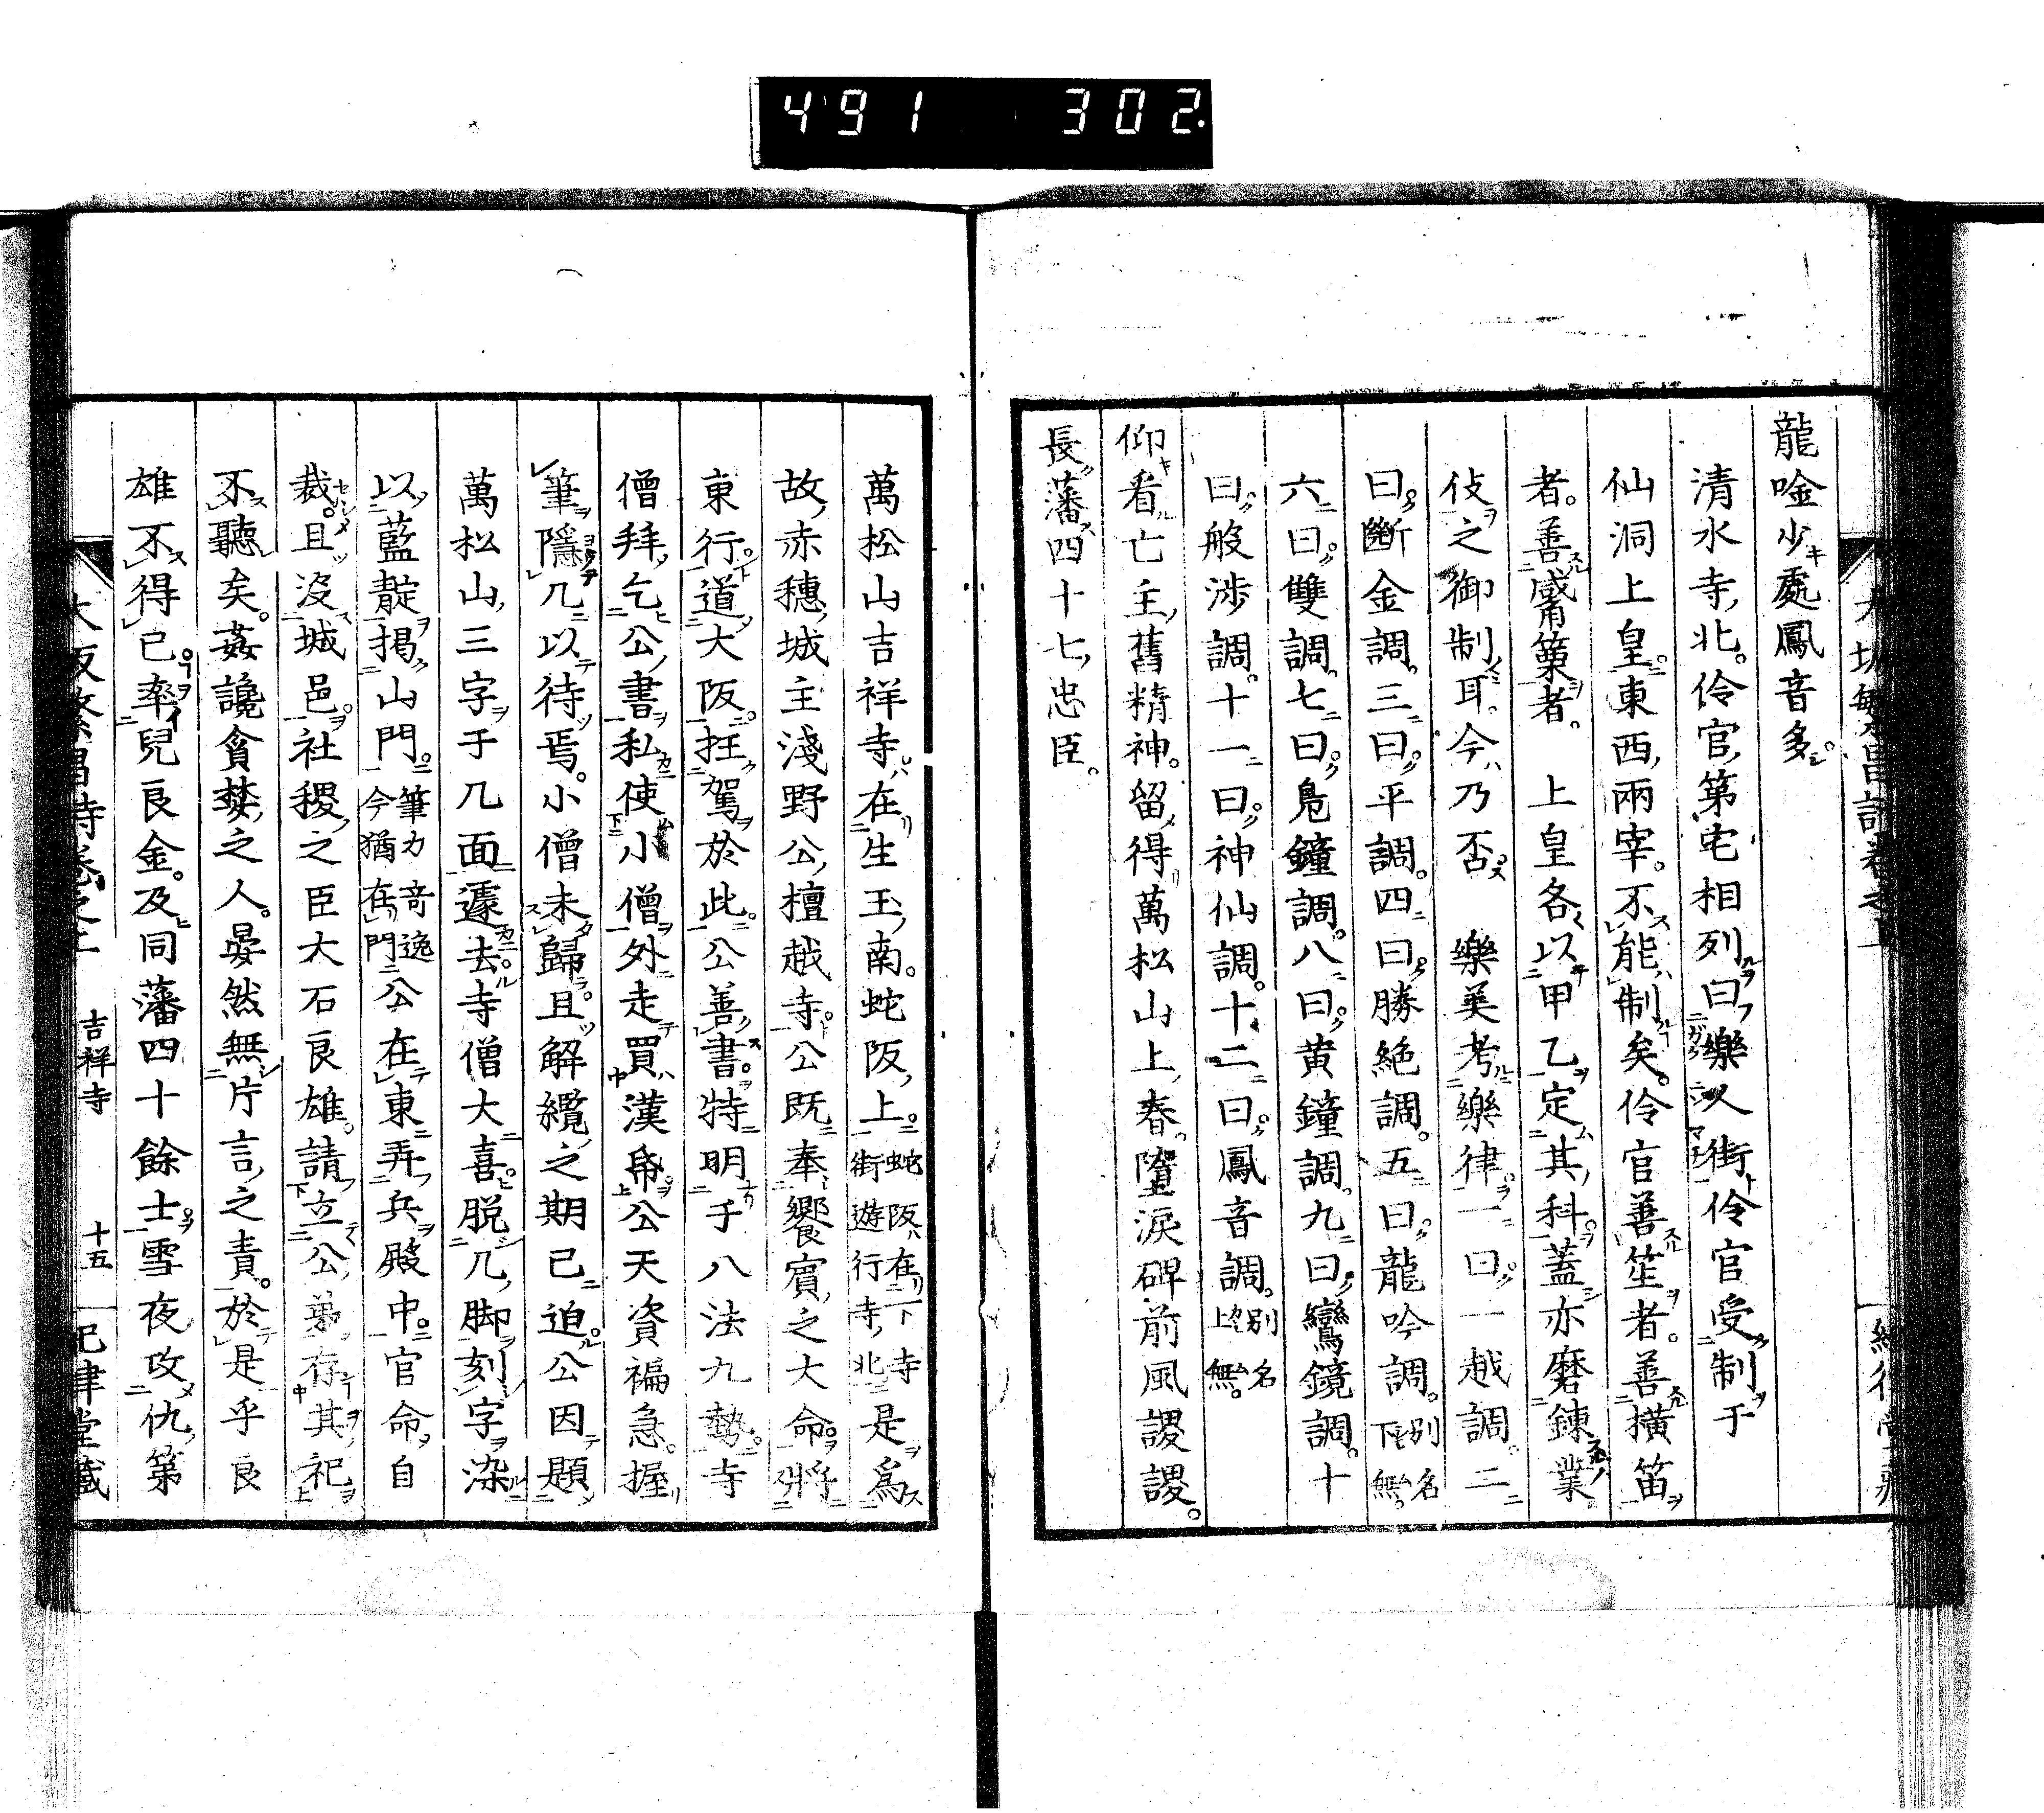 491 302
龍唫少處鳳音多
清水寺北。伶官第宅相列曰樂人街伶官受制于
仙洞上皇東西兩宰。不能制矣。伶官善笙者。善橫笛
者。善觱篥者。 上皇各以甲乙定其科蓋亦磨鍊業
伎之御制耳。今乃否 樂英考樂律一曰一越調。二
曰斷金調。三曰平調。四曰勝絶調。五曰龍吟調。別名下無。
六曰雙調。七曰鳧鐘調。八曰黄鐘調。九曰鸞鏡調。十
曰般涉調。十一曰神仙調。十二曰鳳音調。別名上無。
仰看亡主舊精神。留得萬松山上春。墮淚碑前風謖謖。
長藩四十七忠臣。
萬松山吉祥寺在生玉南。蛇阪上蛇阪在下寺街遊行寺北是爲
故赤穗城主淺野公檀越寺公既奉饗賓之大命將
東行道大阪抂駕於此公善書特明于八法九勢。寺
僧拜乞公書私使小僧外走買漢帋公天資褊急。握
筆隱几以待焉。小僧未歸且解纜之期已迫公因題
萬松山三字于几面遽去寺僧大喜脱几脚刻字染
以藍靛掲山門筆力竒逸今猶在門公在東弄兵殿中官命自
裁。且沒城邑社稷之臣大石良雄。請立公弟存其祀
不聽矣。姦讒貪婪之人。晏然無片言之責。於是乎良
雄不得已率兒良金。及同藩四十餘士雪夜攻仇第
大阪繁昌詩卷之上 吉祥寺 十五